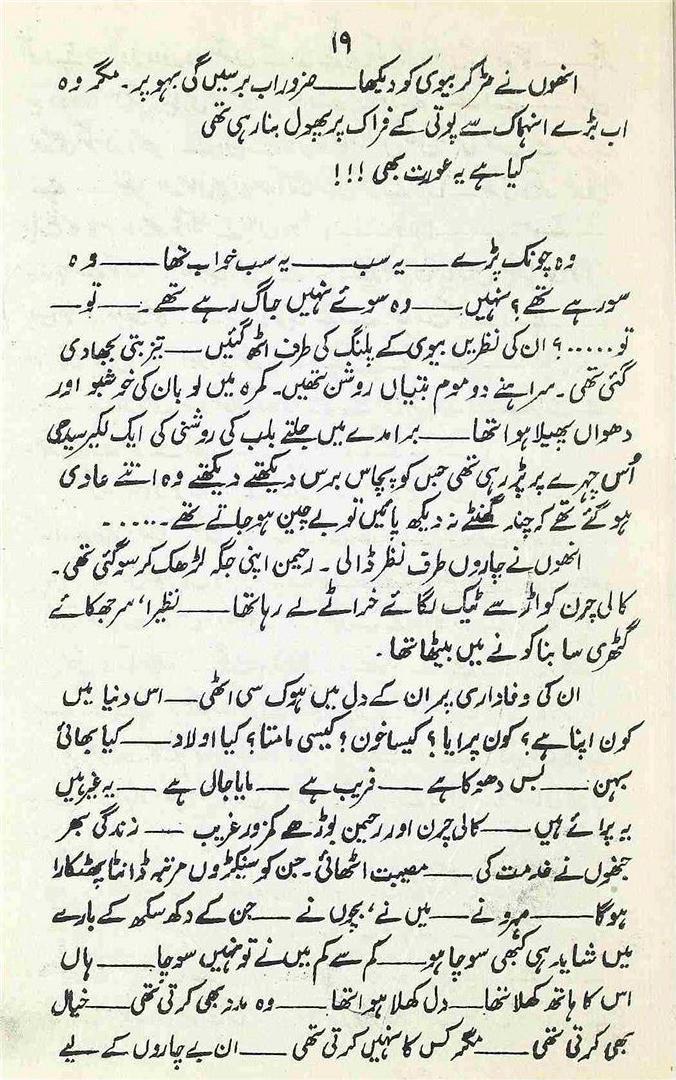 ۱۹
انھوں نے مڑ کر بیوی کو دیکھا ــــ ضرور اب برسیں گی بہو پر۔ مگر وہ
اب بڑے انہماک سے پوتی کے فراک پر پھول بنا رہی تھی
کیا ہے یہ عورت بھی !!!
وہ چونک پڑے ــــ یہ سب ــــ یہ سب خواب تھا ــــ وہ
سو رہے تھے؟ نہیں ــــ وہ سوئے نہیں جاگ رہے تھے ۔ ــــ تو ــــ
تو ..... ؟ ان کی نظریں بیوی کے پلنگ کی طرف اٹھ گئیں ــــ تیز بتی بجھا دی
گئی تھی ۔ سراہنے دو موم بتیاں روشن تھیں۔ کمرہ میں لوبان کی خوشبو اور
دھواں پھیلا ہوا تھا ــــ برامدے میں جلتے بلب کی روشنی کی ایک لکیر سیدھی
اُس چہرے پر پڑ رہی تھی جس کو پچاس برس دیکھتے دیکھتے وہ اتنے عادی
ہو گئے تھے کہ چند گھنٹے نہ دیکھ پائیں تو بے چین ہو جاتے تھے ......
انھوں نے چاروں طرف نظر ڈالی ۔ رحیمن اپنی جگہ لڑھک کر سو گئی تھی ۔
کالی چرن کواڑ سے ٹیک لگائے خراٹے لے رہا تھا ــــ نظیرا، سر جھکائے
گٹھری سا بنا کونے میں بیٹھا تھا ۔
ان کی وفاداری پر ان کے دل میں ہوک سی اٹھی ــــ اس دنیا میں
کون اپنا ہے؟ کون پرایا؟ کیسا خون؟ کیسی مامتا؟ کیا اولاد ــــ کیا بھائی
بہن ــــ بس دھوکا ہے ــــ فریب ہے ــــ مایا جال ہے ــــ یہ غیر ہیں
یہ پرائے ہیں ــــ کالی چرن اور رحیمن بوڑھے کمزور غریب ــــ زندگی بھر
جنھوں نے خدمت کی ــــ مصیبت اٹھائی ۔ جن کو سینکڑوں مرتبہ ڈانٹا پھٹکارا
ہوگا ــــ مہرو نے ــــ میں نے، بچوں نے ــــ جن کے دکھ سکھ کے بارے
میں شاید ہی کبھی سوچا ہو ــــ کم سے کم میں نے تو نہیں سوچا ــــ ہاں
اس کا ہاتھ کھلا تھا ــــ دل کھلا ہوا تھا ــــ وہ مدد بھی کرتی تھی ــــ خیال
بھی کرتی تھی ــــ مگر کس کا نہیں کرتی تھی ــــ ان بے چاروں کے لیے